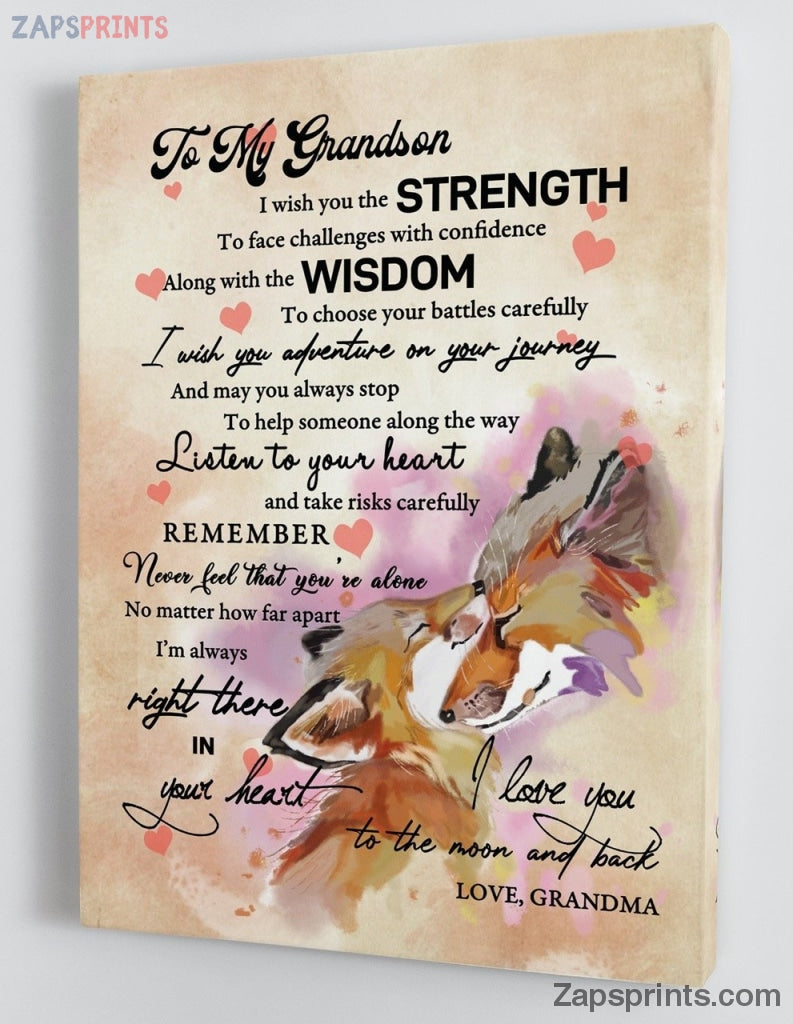 ZAPSPRINTS
To My Grandson
I wish you the STRENGTH
To face challenges with confidence
Along with the WISDOM
To choose your battles carefully
I wish you adventure on your journey
And may you always stop
To help someone along the way
Listen to your heart
and take risks carefully
REMEMBER
Never feel that you're alone
No matter how far apart
I'm always
right there
IN
your heart
I love you
to the moon and back
LOVE, GRANDMA
Zapsprints.com